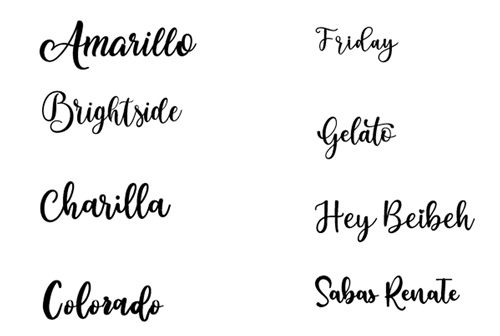 Amarillo
Brightside
Charilla
Colorado
Friday
Gelato
Hey Beibeh
Sabas Renate